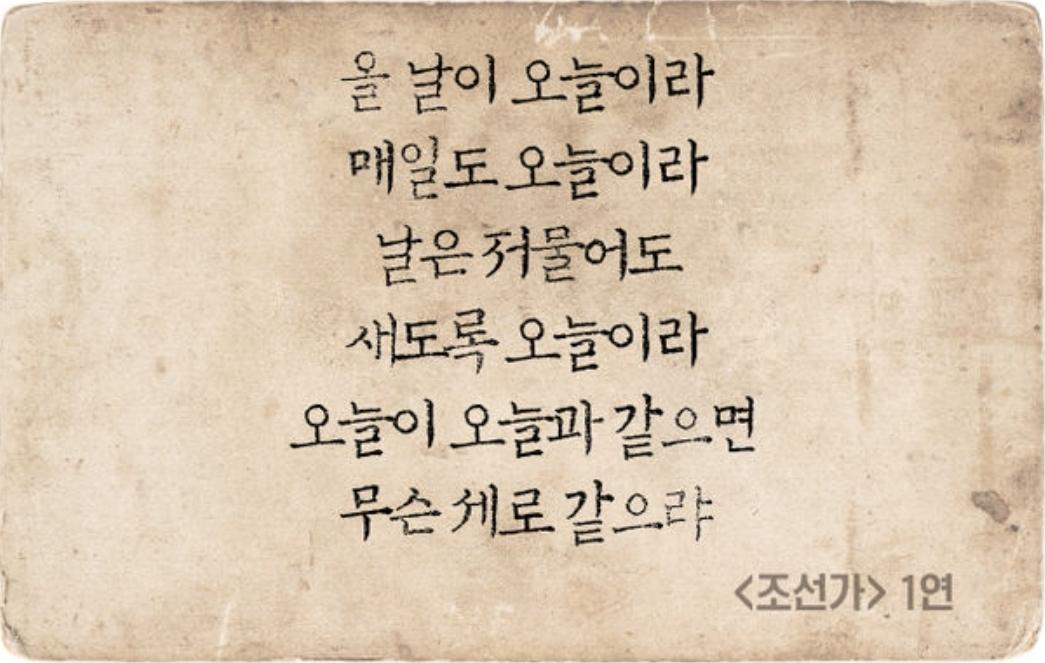 올 날이 오늘이라
매일도 오늘이라
날은 저물어도
새도록 오늘이라
오늘이 오늘과 같으면
무슨 세로 같으랴
<조선가> 1연